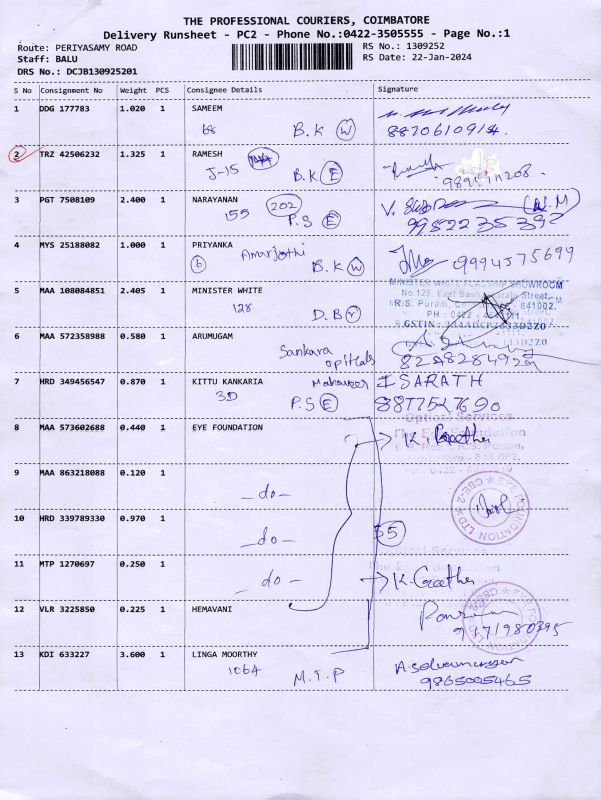 THE PROFESSIONAL COURIERS, COIMBATORE
Delivery Runsheet - PC2 - Phone No.:0422-3505555 - Page No.:1
Route: PERIYASAMY ROAD RS No.: 1309252
Staff: BALU RS Date: 22-Jan-2024
DRS No.: DCJB130925201
S No Consignment No Weight PCS Consignee Details Signature
1 DDG 177783 1.020 1 SAMEEM
68 B.K W 8870610914.
2 TRZ 42506232 1.325 1 RAMESH
J-15 B.K E
3 PGT 7508109 2.400 1 NARAYANAN 202 V.
155 P.S E 9952235392
4 MYS 25188082 1.000 1 PRIYANKA
6 Amarjothi B.K W 9994575699
5 MAA 108084851 2.405 1 MINISTER WHITE MINISTER WHITE FLAGSHIP SHOWROOM
128 D.B No.128, East
R.S. Puram, 641002.
PH : 0422
GSTIN :
6 MAA 572358988 0.580 1 ARUMUGAM
Sankara
7 HRD 349456547 0.870 1 KITTU KANKARIA Mahaveer I SARATH
3D P.S E 8877527690
8 MAA 573602688 0.440 1 EYE FOUNDATION K. Geetha
Optical Services
The Eye Foundation
9 MAA 863218088 0.120 1
-do-
EYE FOUNDATION LTD CBE-2
10 HRD 339789330 0.970 1
-do- 55
11 MTP 1270697 0.250 1
-do- K. Geetha
12 VLR 3225850 0.225 1 HEMAVANI
EYE FOUNDATION
13 KDI 633227 3.600 1 LINGA MOORTHY
1064 M.T.P 9865005465